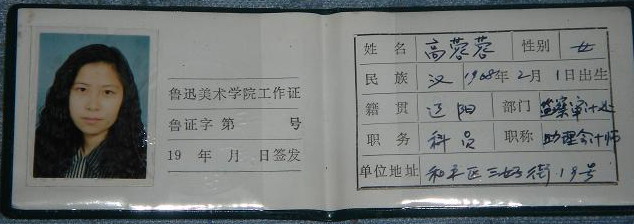 鲁迅美术学院工作证
鲁证字 第 号
19 年 月 日签发
姓 名 高蓉蓉 性别 女
民 族 汉 1968年2月1日出生
籍 贯 辽阳 部门 监察审计处
职 务 科员 职称 助理会计师
单位地址 和平区三好街19号